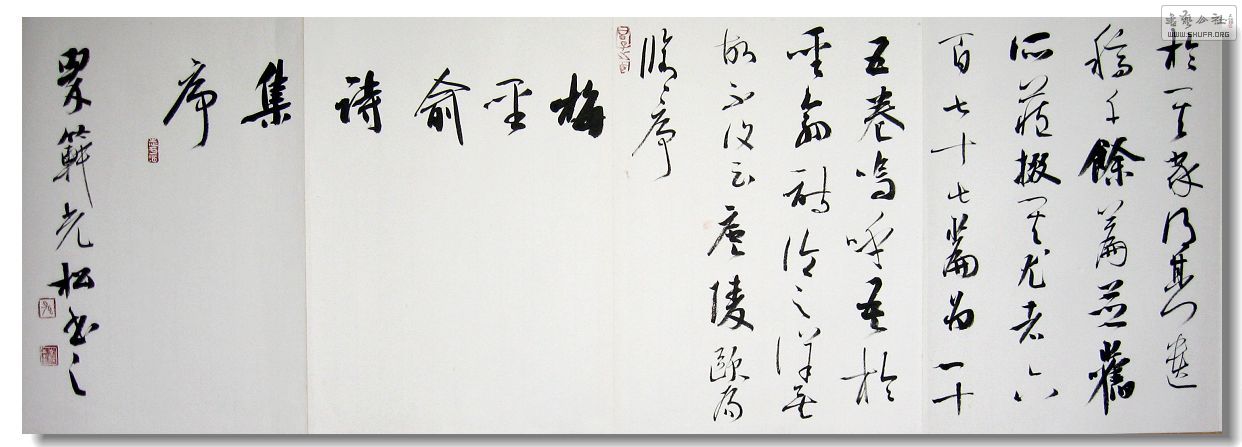 於其家得其遺
稿千餘篇並舊
所藏掇其尤者六
百七十七篇為一十
五卷嗚呼吾於
聖俞詩論之詳矣
故不復云廬陵歐陽
脩序
梅聖俞詩集序
光松書之
書藝公社
WWW.SHUFA.ORG